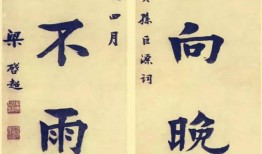 向晚
孫巨源詞
四月
不雨
梁啓超